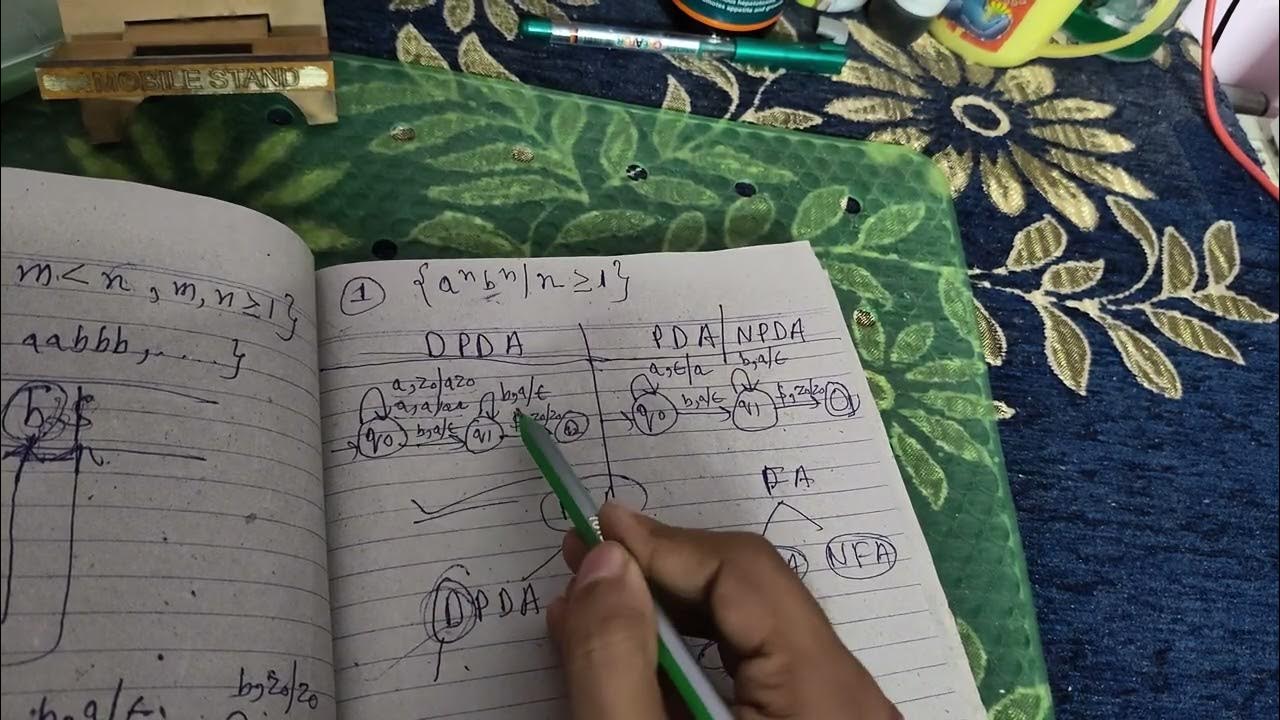 MOBILE STAND
m < n, m, n ≥ 1}
aabbb, ..... }
b
b,a/ε
b,z0/z0
① {aⁿbⁿ | n ≥ 1}
DPDA
PDA | NPDA
a,z0/az0
a,a/aa
b,a/ε
q0
b,a/ε
q1
$,z0/z0
q2
a,ε/a
b,a/ε
q0
b,a/ε
q1
$,z0/z0
FA
NFA
DPDA